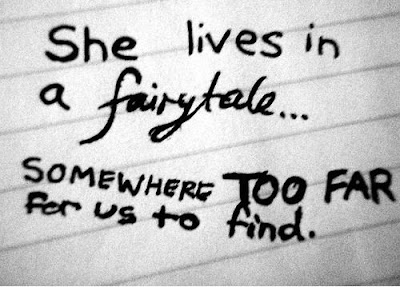 She lives in
a fairytale...
SOMEWHERE TOO FAR
for us to find.